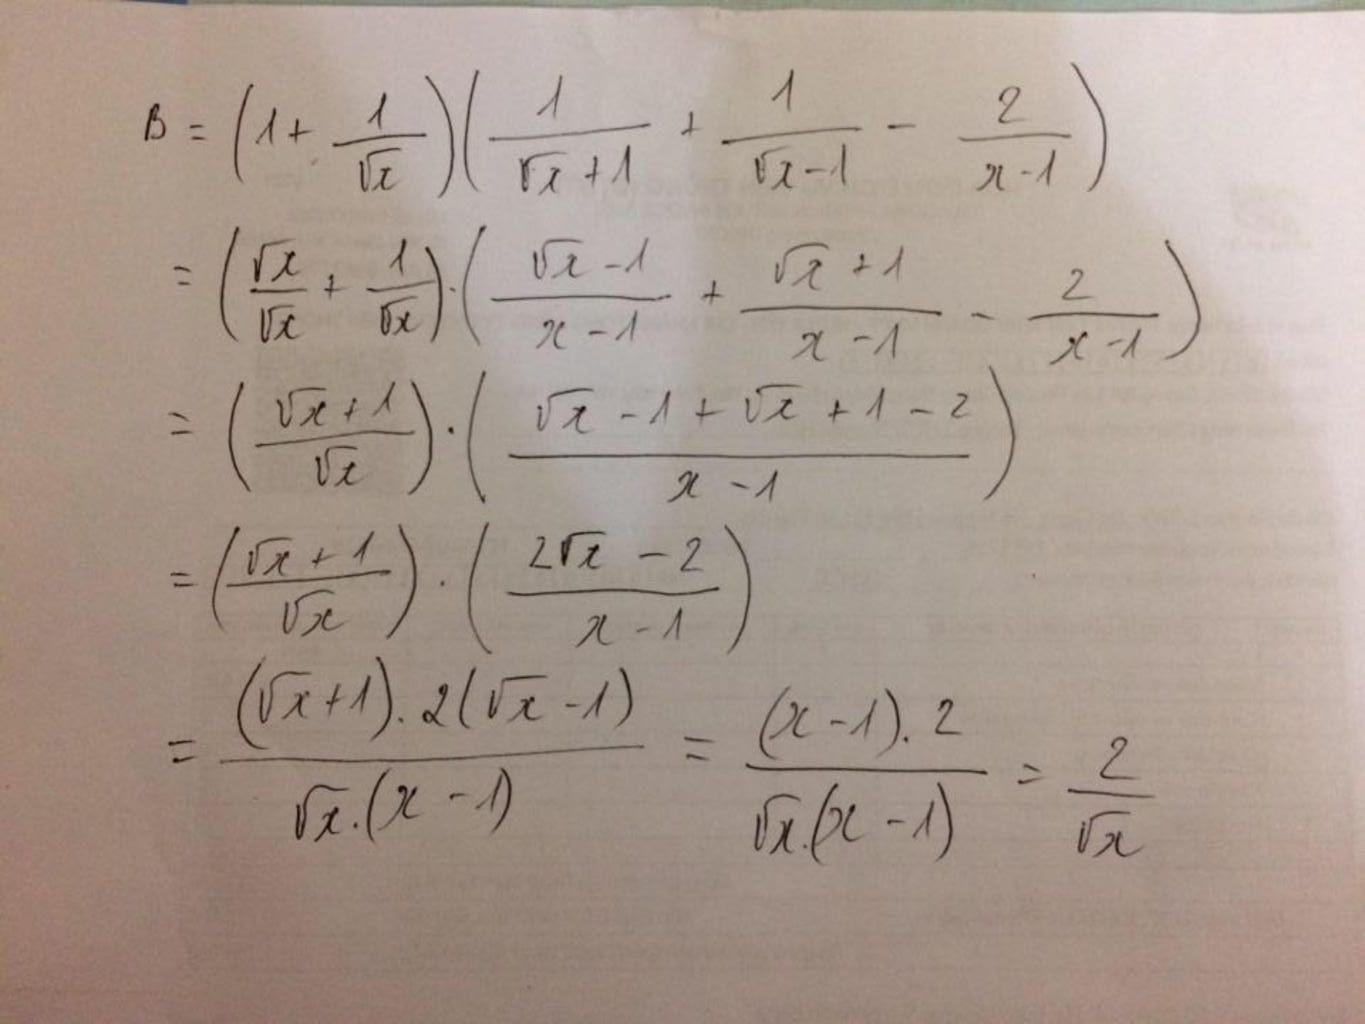 B = (1 + 1/√x)(1/(√x + 1) + 1/(√x - 1) - 2/(x - 1))
= (√x/√x + 1/√x) · ((√x - 1)/(x - 1) + (√x + 1)/(x - 1) - 2/(x - 1))
= ((√x + 1)/√x) · ((√x - 1 + √x + 1 - 2)/(x - 1))
= ((√x + 1)/√x) · ((2√x - 2)/(x - 1))
= ((√x + 1) . 2(√x - 1))/(√x . (x - 1)) = ((x - 1) . 2)/(√x . (x - 1)) = 2/√x